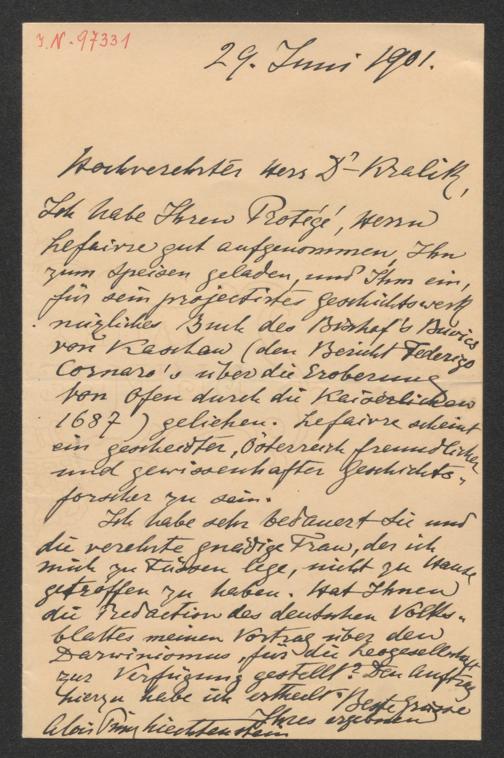 I.N. 97331
29. Juni 1901.
Hochverehrter Herr Dr Kralik,
Ich habe Ihren Protégé, Herrn
Lefaivre gut aufgenommen, Ihn
zum Speisen geladen, und Ihm ein,
für sein projectirtes Geschichtswerk
nützliches Buch des Bischof's Bubics
von Kaschau (den Bericht Federigo
Cornaro's über die Eroberung
von Ofen durch die Kaiserlichen
1687) geliehen. Lefaivre scheint
ein gescheidter, Österreich freundlicher
und gewissenhafter Geschichts-
forscher zu sein.
Ich habe sehr bedauert Sie und
die verehrte gnädige Frau, der ich
mich zu Füssen lege, nicht zu Hause
getroffen zu haben. Hat Ihnen
die Redaction des deutschen Volks-
blattes meinen Vortrag über den
Darwinismus für die Leogesellschaft
zur Verfügung gestellt? Den Auftrag
hierzu habe ich ertheilt. Beste Grüsse
Ihres ergebenen
Alois Prinz Liechtenstein